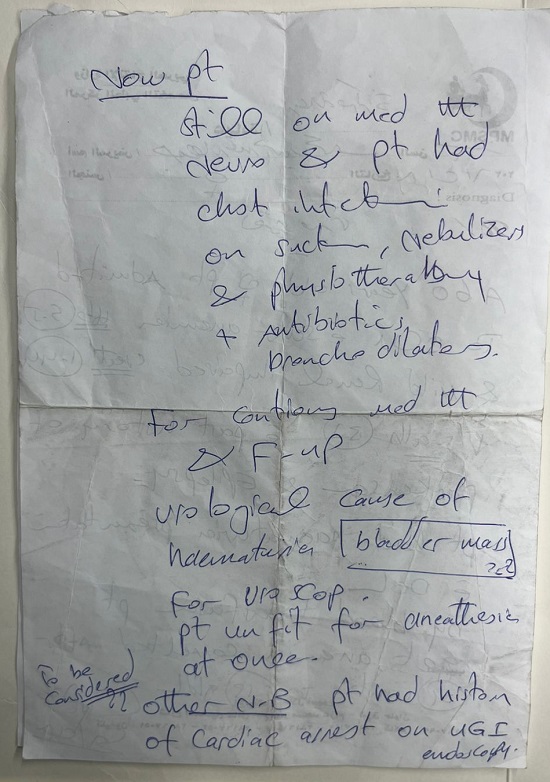 Now pt
still on med ttt
Neuro & pt had
chest infection
on suction, Nebulizers
& physiotheraby
+ Antibiotics,
bronchodilators.
For continuous med ttt
& F-up
urological cause of
haematuria bladder mass
??
For uroscop.
pt unfit for aneathesia
at once.
To be
considered
!!
other N-B pt had histon
of Cardiac arrest on UGI
endoscopy.
MPSMC
Diagnosis